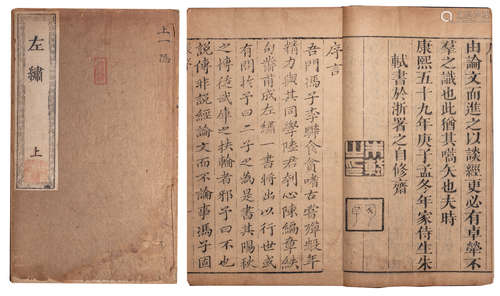 左繡
上
由論文而進之以談經更必有卓犖不
羣之識也此猶其嚆矢也夫時
康熙五十九年庚子孟冬年家侍生朱
軾書於浙署之自修齋
序言
吾門馮子李驊食貧嗜古嘗殫數年
精力與其同學陸君刳心陳編章
甫成左繡一書將出以行世或
有問於予曰二子之為是書其陽秋
之博徒武庫之扶輪者邪予曰不也
說傳非說經論文而不論事馮子固